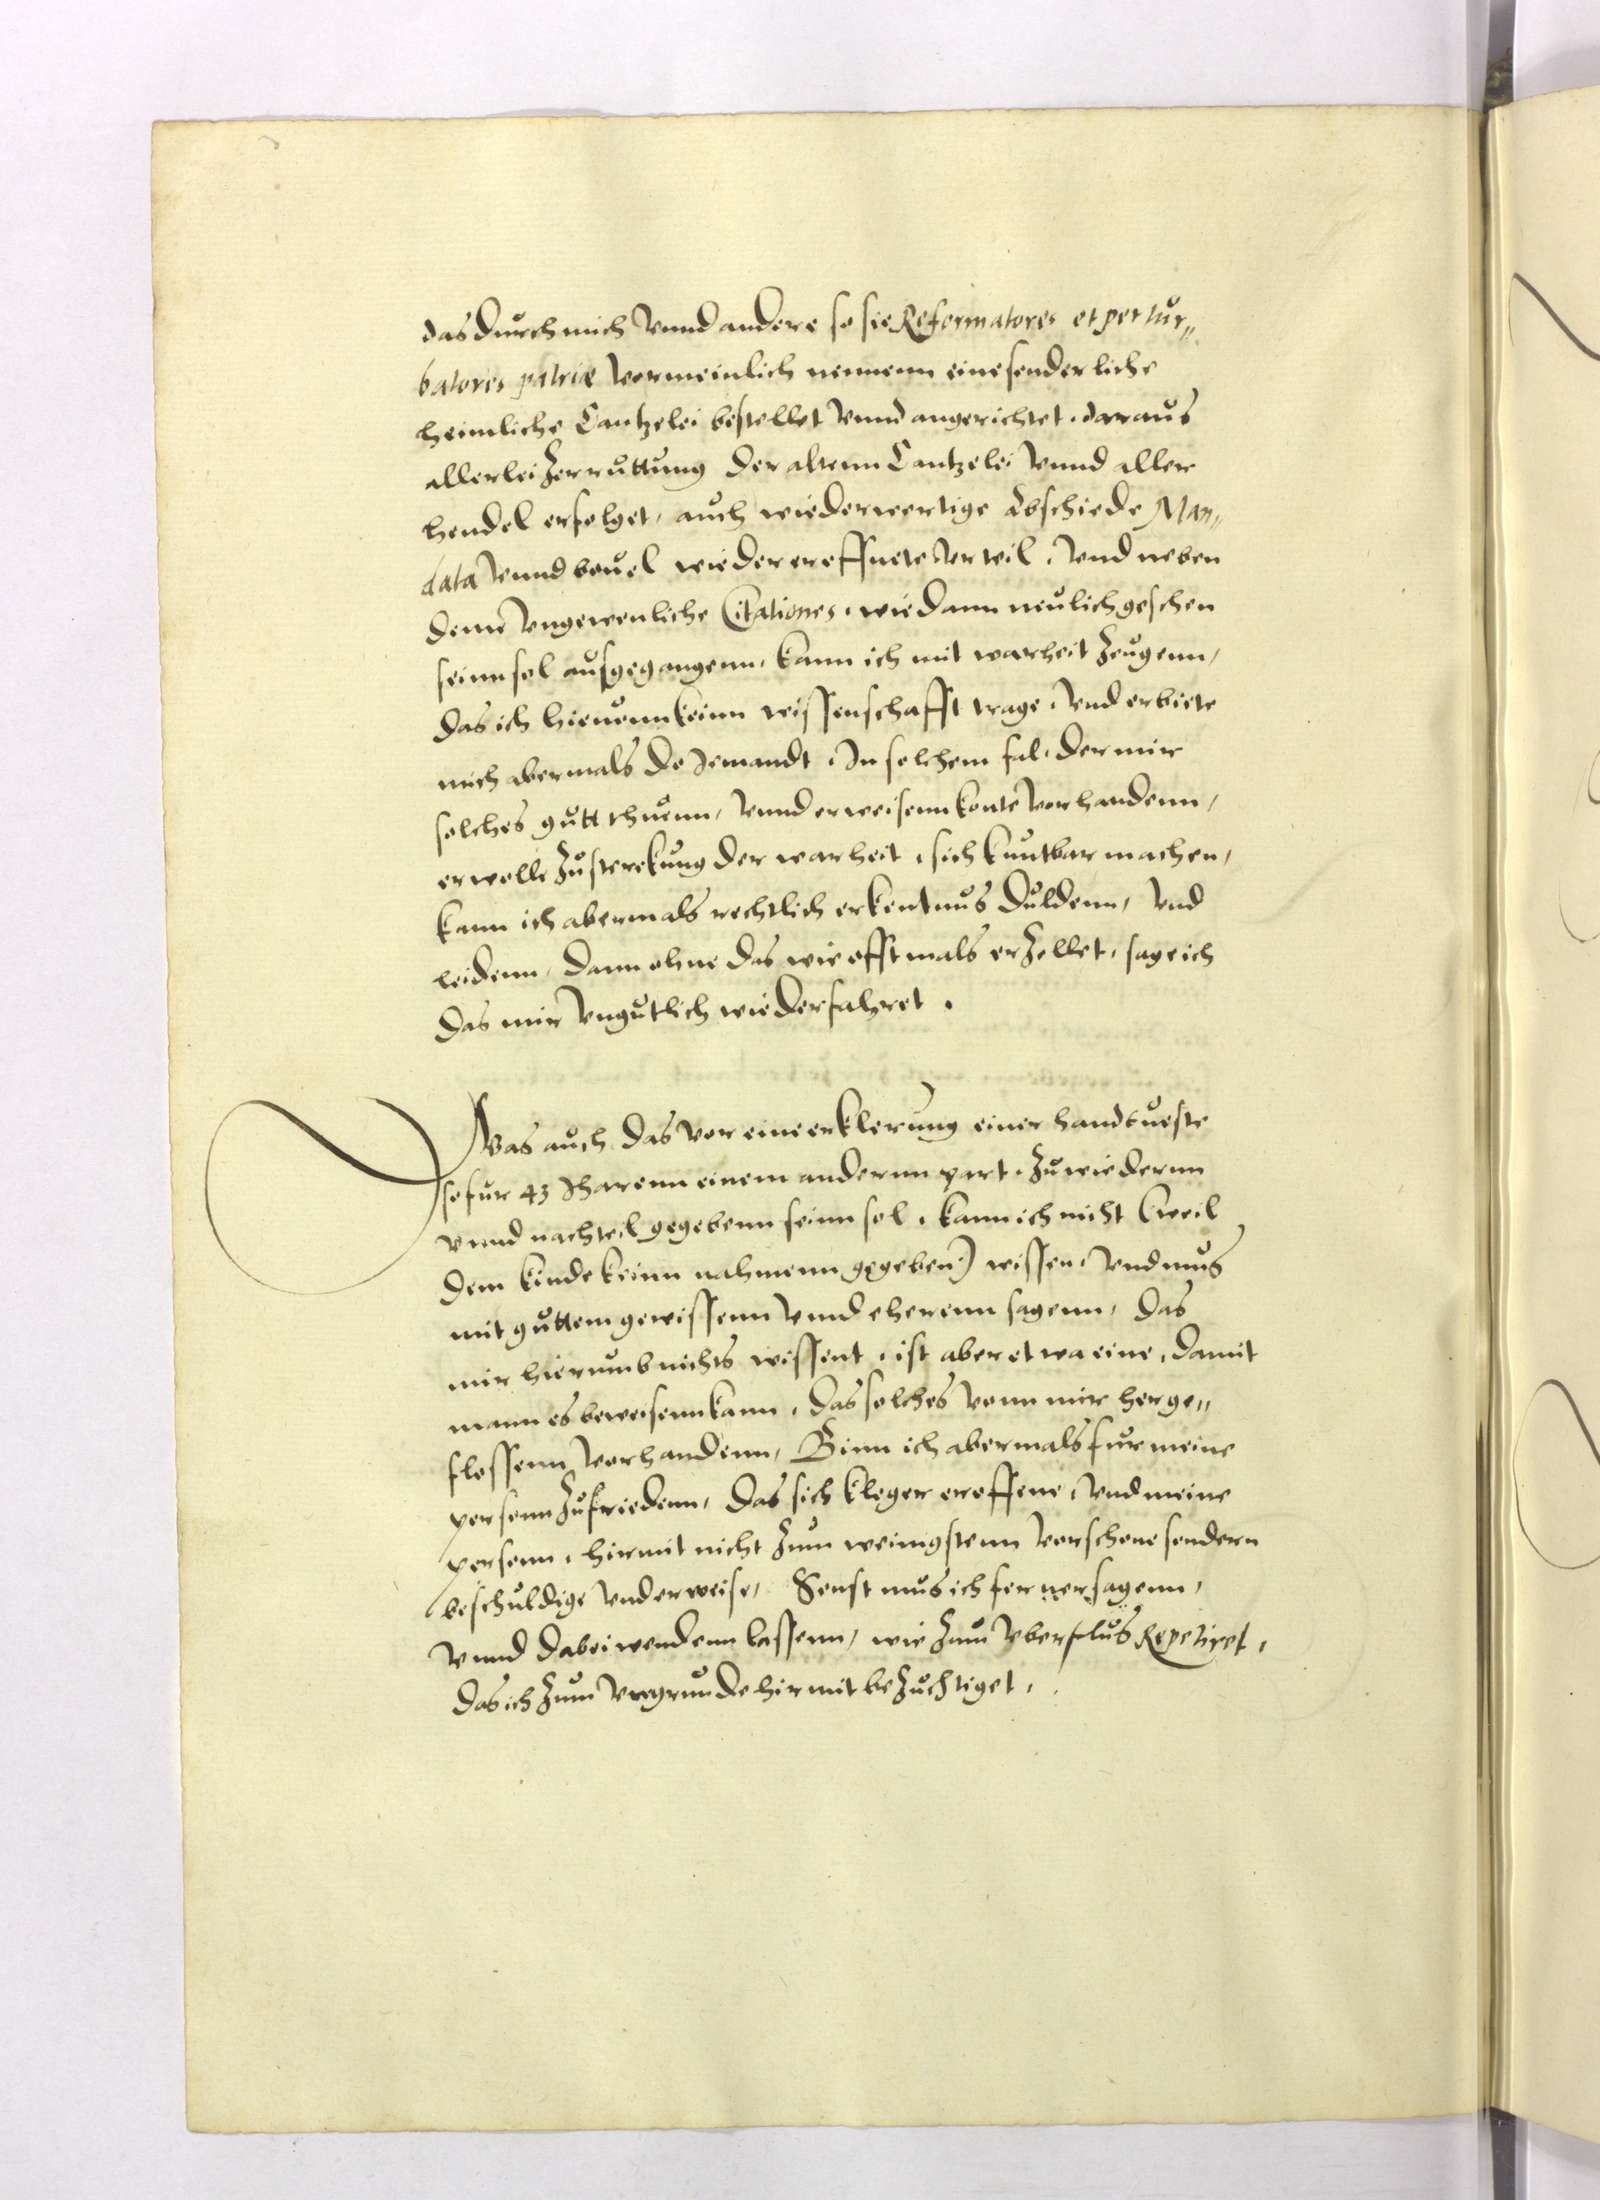 das durch mich vnnd andere so sie Reformatores et pertur„
batores patriæ vormeinlich nennenn eine sonderliche
heimliche Cantzelei bestellet vnnd angerichtet, daraus
allerlei Zerruttung der altenn Cantzelei vnnd aller
hendel erfolget, auch wiederwertige Abschiede Man„
data vnnd beuel wieder ereffnete vrteil, vnd neben
deme vngewenliche Citationes, wie dann neulich geschen
seinn sol ausgegangenn, kann ich mit warheit Zeugenn,
das ich hieuonn keinn wissenschafft trage, vnd erbiete
mich abermals do Jemandt, In solchem fal, der mir
solches gutt thuenn, vnnd erweisenn konte vorhandenn,
er wolle Zu sterckung der warheit, sich kuntbar machen,
kann ich abermals rechtlich erkentnus duldenn, vnd
leidenn, dann ohne das wie offtmals erZellet, sage ich
das mir vngutlich wiederfahret.
Was auch das vor eine erklerung einer handtueste
so fur 43 Jharenn einem andernn part, Zuwiedernn
vnnd nachteil gegebenn seinn sol, kann ich nicht (weil
dem kinde keinn nahmenn gegeben) wissen, vnd mus
mit guttem gewissenn vnnd eherenn sagenn, das
mir hierumb nichts wissent, ist aber etwa eine, damit
mann es beweisenn kann, das solches vonn mir herge„
flossenn vorhandenn, Binn ich abermals fur meine
personn Zufriedenn, das sich kleger ereffene, vnd meine
personn, hirmit nicht Zum weinigstenn vorschone sondern
beschuldige vnd erweise, Sonst mus ich ferner sagenn,
vnnd dabei wendenn lassenn, wie Zum vberflus Repetiret,
das ich Zum vngrunde hirmit beZuchtiget,